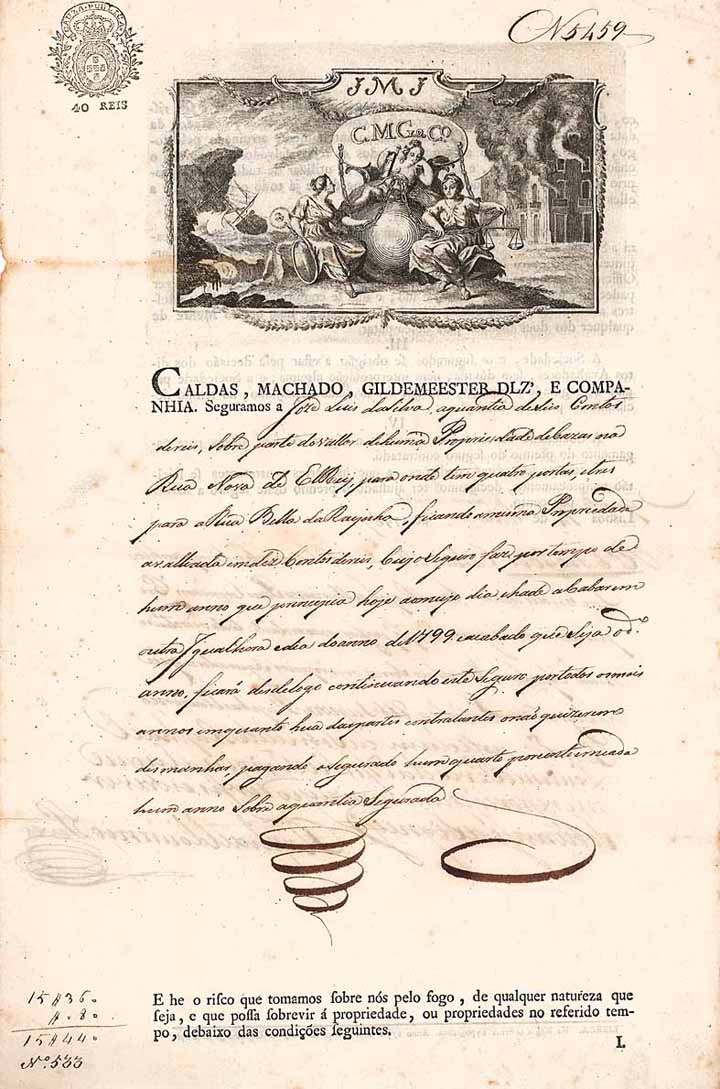 CAUZA PUBLICA
40 REIS
N 5459
J M J
C.M.G. & Cº.
CALDAS, MACHADO, GILDEMEESTER DLZ', E COMPA-
NHIA. Seguramos a Joze Luis da Silva, a quantia de Contos
de reis, Sobre parte do vallor de huma Propriedade de cazas na
Rua Nova de ElRey, para onde tem quatro portas, e tres
para a Rua Bella da Raynha, ficando a mesma Propriedade
avalliada em dez Contos de reis, Cujo Seguro faz por tempo de
hum anno que principia hoje ao meyo dia, e hade acabar em
outra Igual hora e dia do anno de 1799. e acabado que Seja o dº.
anno, ficará desde logo continuando este Seguro por todos os mais
annos, emquanto hua das partes contratantes o naõ quizerem
desmanchar, pagando o Segurado hum quarto por cento em cada
hum anno Sobre a quantia Segurada
E he o riſco que tomamos ſobre nós pelo fogo, de qualquer natureza que
ſeja, e que poſſa ſobrevir á propriedade, ou propriedades no referido tem-
po, debaixo das condições ſeguintes.
I.
15$360
$080
15$440
Nº. 533